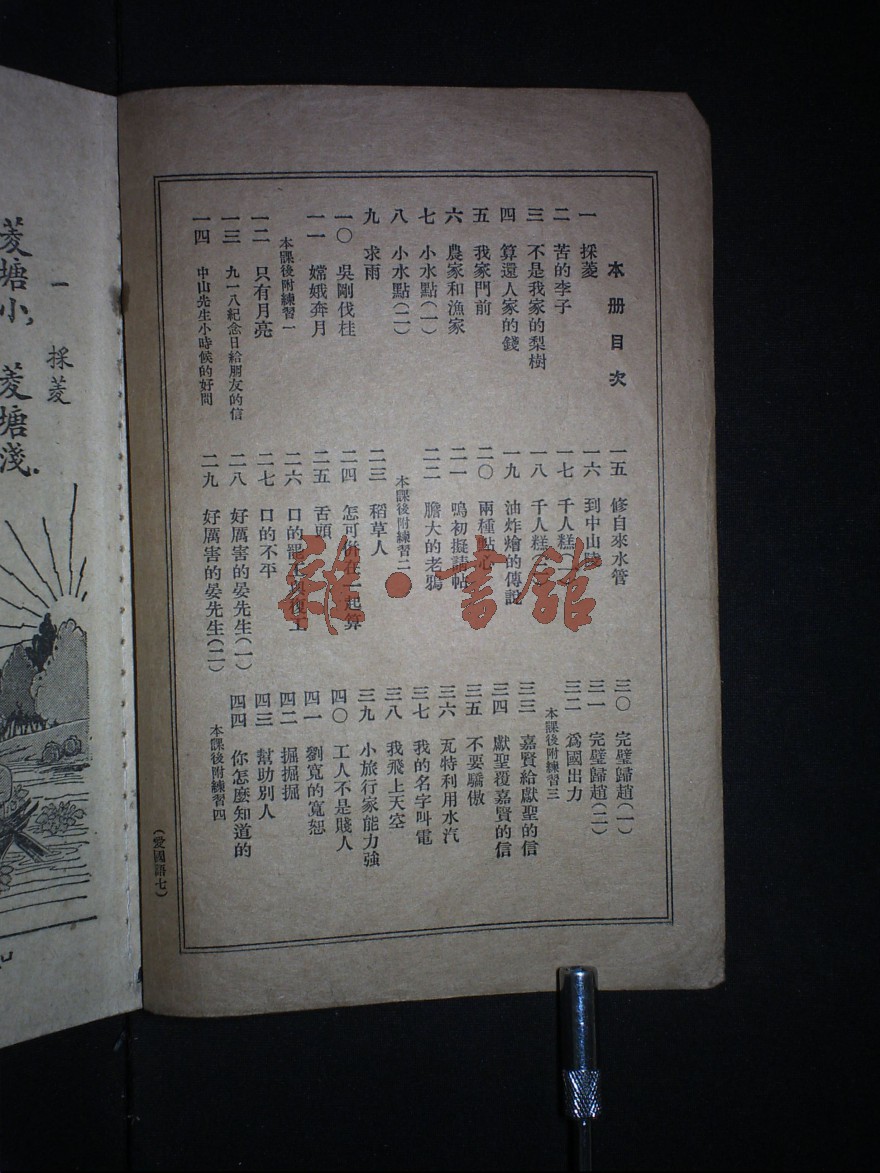 本册目次
一 採菱
二 苦的李子
三 不是我家的梨樹
四 算還人家的錢
五 我家門前
六 農家和漁家
七 小水點(一)
八 小水點(二)
九 求雨
一〇 吳剛伐桂
一一 嫦娥奔月
本課後附練習一
一二 只有月亮
一三 九一八紀念日給朋友的信
一四 中山先生小時候的好問
一五 修自來水管
一六 到中山陵
一七 千人糕
一八 千人糕
一九 油炸燴的傳說
二〇 兩種點心
二一 鳴初擬請帖
二二 膽大的老鴉
本課後附練習二
二三 稻草人
二四 怎可併在一起算
二五 舌頭
二六 口的罷工與復工
二七 口的不平
二八 好厲害的晏先生(一)
二九 好厲害的晏先生(二)
三〇 完璧歸趙(一)
三一 完璧歸趙(二)
三二 爲國出力
本課後附練習三
三三 嘉賢給獻聖的信
三四 獻聖覆嘉賢的信
三五 不要驕傲
三六 瓦特利用水汽
三七 我的名字叫電
三八 我飛上天空
三九 小旅行家能力強
四〇 工人不是賤人
四一 劉寬的寬恕
四二 掘掘掘
四三 幫助別人
四四 你怎麼知道的
本課後附練習四
(愛國語七)
一 採菱
菱塘小,菱塘淺.
雜·書館